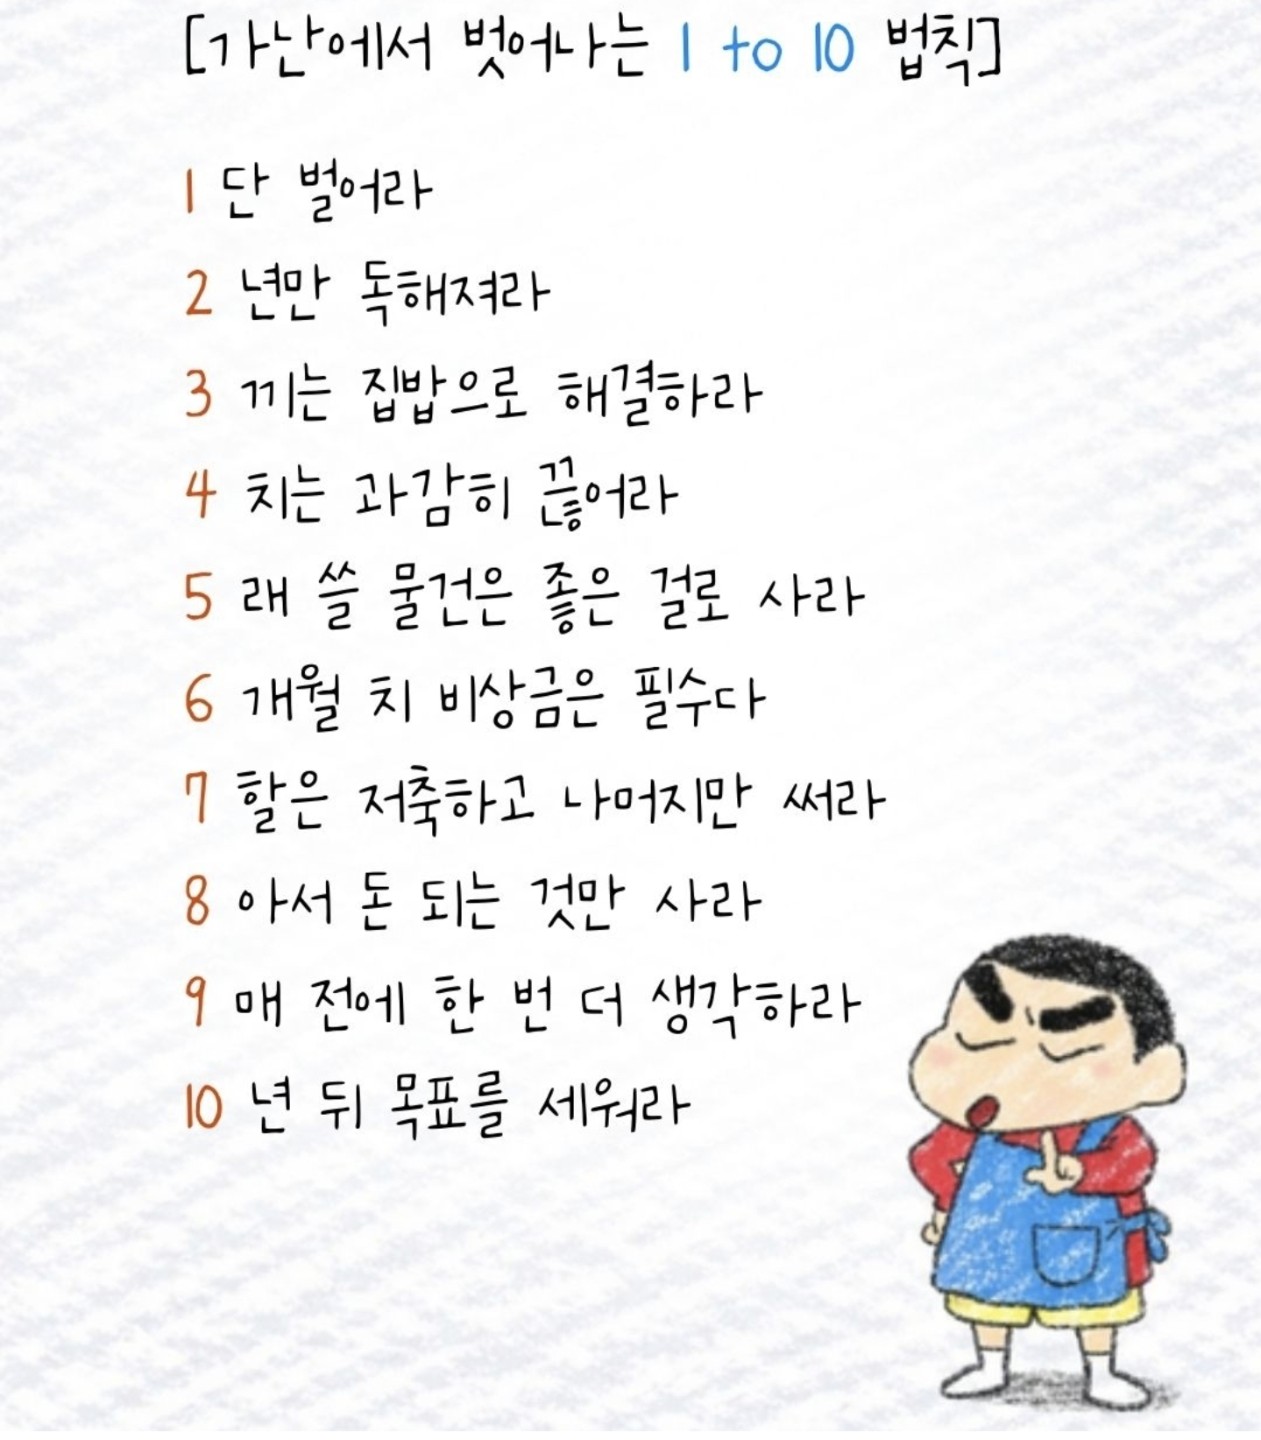 [가난에서 벗어나는 1 to 10 법칙]
1 단 벌어라
2 년만 독해져라
3 끼는 집밥으로 해결하라
4 치는 과감히 끊어라
5 래 쓸 물건은 좋은 걸로 사라
6 개월 치 비상금은 필수다
7 할은 저축하고 나머지만 써라
8 아서 돈 되는 것만 사라
9 매 전에 한 번 더 생각하라
10 년 뒤 목표를 세워라